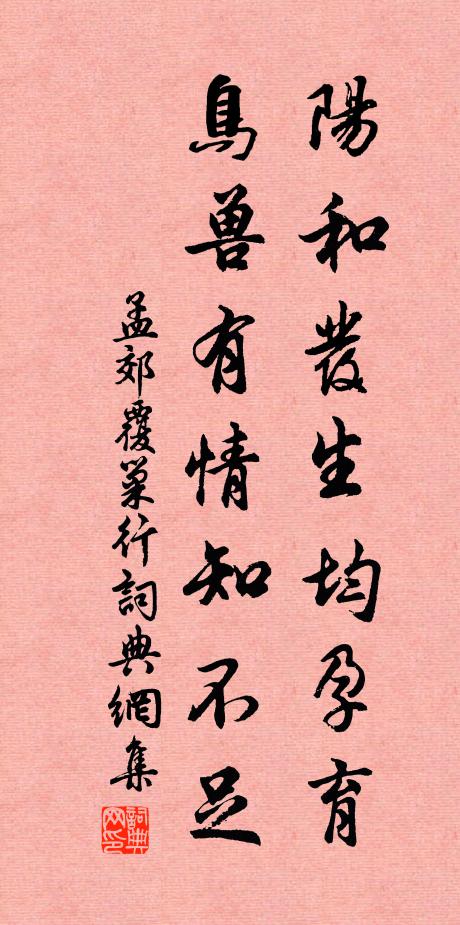 陽和發生均孕育
鳥兽有情知不足
孟郊覆巢行詞典網集
詞典網印